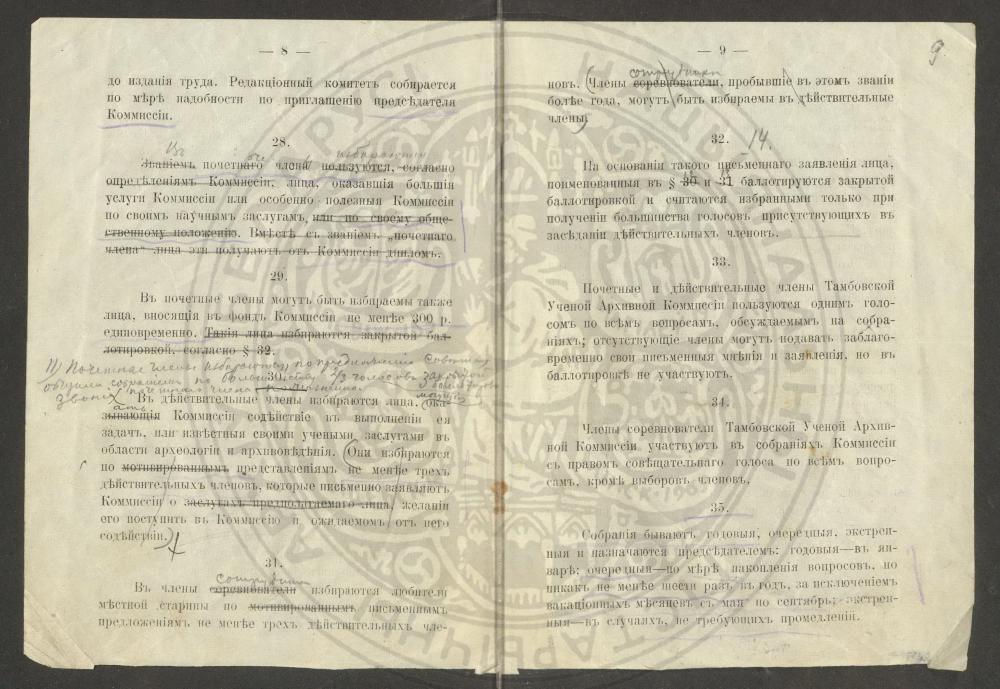 — 8 —
до изданія труда. Редакціонный комитетъ собирается
по мѣрѣ надобности по приглашенію предсѣдателя
Коммиссіи.
28.
Въ
избираются
Званіемъ почетнаго члена пользуются, согласно
опредѣленіямъ Коммиссіи, лица, оказавшія большія
услуги Коммиссіи или особенно полезныя Коммиссіи
по своимъ научнымъ заслугамъ, или по своему обще-
ственному положенію. Вмѣстѣ съ званіемъ „почетнаго
члена“ лица эти получаютъ отъ Коммиссіи дипломъ.
29.
Въ почетные члены могутъ быть избираемы также
лица, вносящія въ фондъ Коммиссіи не менѣе 300 р.
единовременно. Такія лица избираются закрытой бал-
лотировкой, согласно § 32.
11) Почетные члены избираются по предложенію Совета
общимъ собраніемъ по большинству 2/3 голосовъ закрытой
30.
Званіе почетнаго члена
Въ дѣйствительные члены избираются лица, ока-
зывающія Коммиссіи содѣйствіе въ выполненіи ея
задачъ, или извѣстныя своими учеными заслугами въ
области археологіи и архивовѣдѣнія. Они избираются
по мотивированнымъ представленіямъ не менѣе трехъ
дѣйствительныхъ членовъ, которые письменно заявляютъ
Коммиссіи о заслугахъ предполагаемаго лица, желаніи
его поступить въ Коммиссію и ожидаемомъ отъ него
содѣйствіи.
31.
сотрудники
Въ члены соревнователи избираются любители
мѣстной старины по мотивированнымъ письменнымъ
предложеніямъ не менѣе трехъ дѣйствительныхъ чле-
— 9 —
9
сотрудники
новъ. Члены соревнователи, пробывшіе въ этомъ званіи
болѣе года, могутъ быть избираемы въ дѣйствительные
члены.
32. 14.
На основаніи такого письменнаго заявленія лица,
поименованныя въ § 30 и 31 баллотируются закрытой
баллотировкой и считаются избранными только при
полученіи большинства голосовъ присутствующихъ въ
засѣданіи дѣйствительныхъ членовъ.
33.
Почетные и дѣйствительные члены Тамбовской
Ученой Архивной Коммиссіи пользуются однимъ голо-
сомъ по всѣмъ вопросамъ, обсуждаемымъ на собра-
ніяхъ; отсутствующіе члены могутъ подавать заблаго-
временно свои письменныя мнѣнія и заявленія, но въ
баллотировкѣ не участвуютъ.
34.
Члены соревнователи Тамбовской Ученой Архив-
ной Коммиссіи участвуютъ въ собраніяхъ Коммиссіи
съ правомъ совѣщательнаго голоса по всѣмъ вопро-
самъ, кромѣ выборовъ членовъ.
35.
Собранія бываютъ годовыя, очередныя, экстрен-
ныя и назначаются предсѣдателемъ: годовыя—въ ян-
варѣ; очередныя—по мѣрѣ накопленія вопросовъ, но
никакъ не менѣе шести разъ въ годъ, за исключеніемъ
вакаціонныхъ мѣсяцевъ съ мая по сентябрь; экстрен-
ныя—въ случаяхъ, не требующихъ промедленій.